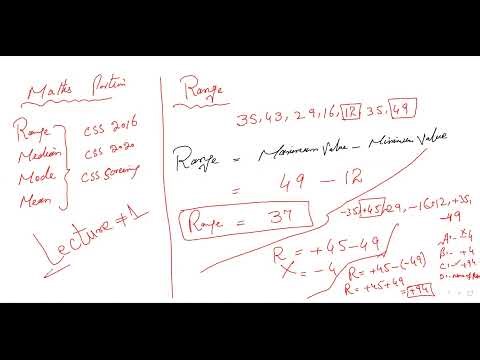 Maths Portion
Range
Median
Mode
Mean
CSS 2016
CSS 2020
CSS Screening
Lecture #1
Range
35, 43, 29, 16, 12, 35, 49
Range = Maximum Value - Minimum Value
= 49 - 12
Range = 37
-35, +45, -29, -16, +12, +35,
-49
R = +45-49
X = -4
R = +45-(-49)
R = +45+49
= +94
A:- -4
B:- +4
C:- +94